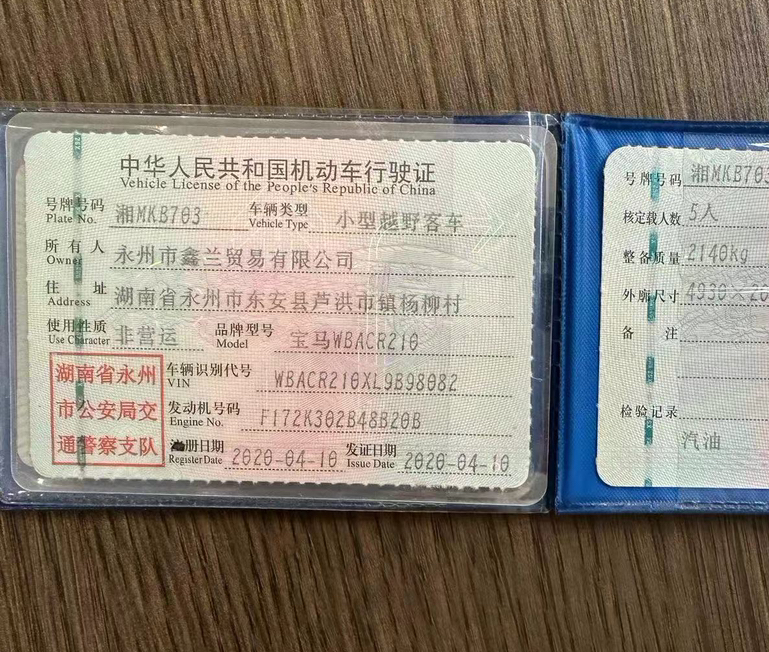 中华人民共和国机动车行驶证
Vehicle License of the People's Republic of China
号牌号码 Plate No. 湘MKB703 车辆类型 Vehicle Type 小型越野客车
所有人 Owner 永州市鑫兰贸易有限公司
住址 Address 湖南省永州市东安县芦洪市镇杨柳村
使用性质 Use Character 非营运 品牌型号 Model 宝马WBACR210
湖南省永州
市公安局交
通警察支队
车辆识别代号 VIN WBACR210XL9B98082
发动机号码 Engine No. F172K302B48B20B
册日期 Register Date 2020-04-10 发证日期 Issue Date 2020-04-10
号牌号码 湘MKB703
核定载人数 5人
整备质量 2140kg
外廓尺寸 4930×20
备注
检验记录
汽油